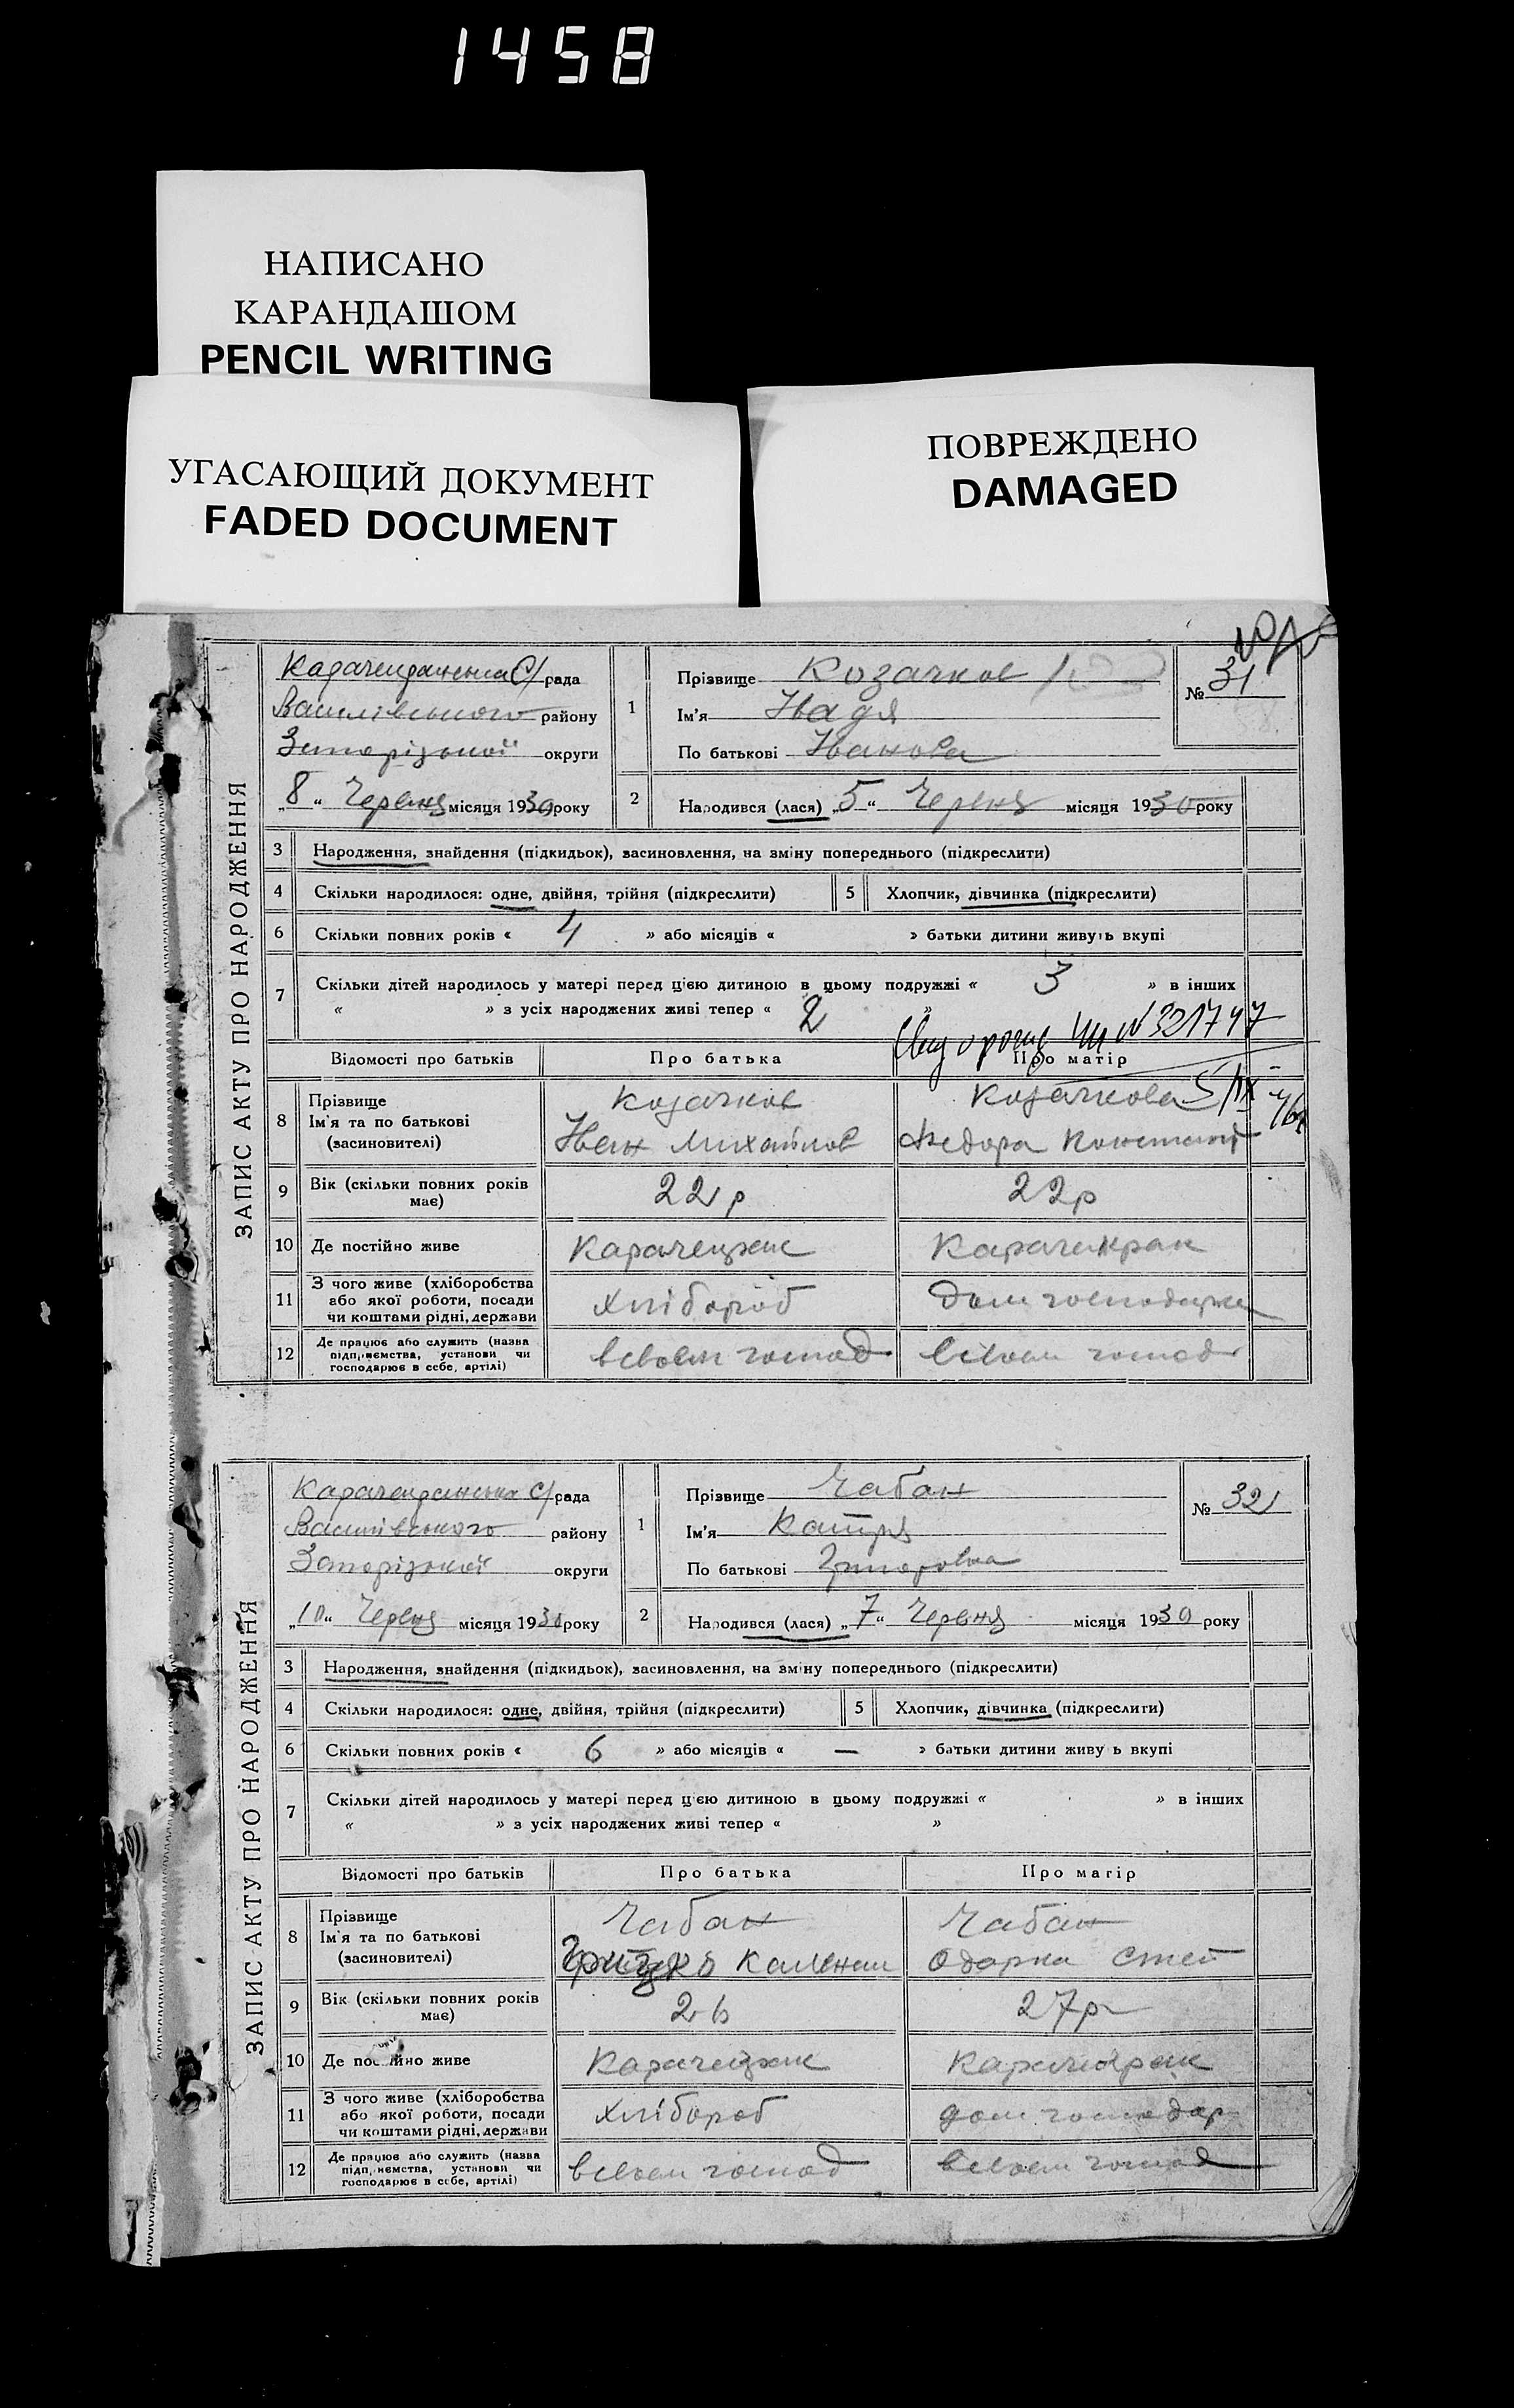 1458
НАПИСАНО
КАРАНДАШОМ
PENCIL WRITING
УГАСАЮЩИЙ ДОКУМЕНТ
FADED DOCUMENT
ПОВРЕЖДЕНО
DAMAGED
ЗАПИС АКТУ ПРО НАРОДЖЕННЯ
С/рада
Василівського району
Запорізької округи
„8“ Червня місяця 1930 року
1
Прізвище Козачков
Ім'я Надя
По батькові Іванова
№ 31
2
Народився (лася) „5“ Червня місяця 1930 року
3 Народження, знайдення (підкидьок), васиновлення, на зміну попереднього (підкреслити)
4 Скільки народилося: одне, двійня, трійня (підкреслити) 5 Хлопчик, дівчинка (підкреслити)
6 Скільки повних років « 4 » або місяців « » батьки дитини живуть вкупі
7 Скільки дітей народилось у матері перед цією дитиною в цьому подружжі « 3 » в інших
« » з усіх народжених живі тепер « 2 »
№ 321747
Відомості про батьків Про батька Про матір
8 Прізвище
Ім'я та по батькові
(засиновителі)
Козачков
Іван Михайлов
Козачкова
Федора Констант
5/IX
9 Вік (скільки повних років має) 22 р 22 р
10 Де постійно живе Карачекрак Карачекрак
11 З чого живе (хліборобства або якої роботи, посади чи коштами рідні, держави Хлібороб Дом господарка
12 Де працює або служить (назва підприємства, установи чи господарює в себе, артілі) в своем господ в своем господ
ЗАПИС АКТУ ПРО НАРОДЖЕННЯ
Карачекранська С/рада
Василівського району
Запорізької округи
„10“ Червня місяця 1930 року
1
Прізвище Чабан
Ім'я Катря
По батькові Григоровна
№ 32
2
Народився (лася) „7“ Червня місяця 1930 року
3 Народження, знайдення (підкидьок), васиновлення, на зміну попереднього (підкреслити)
4 Скільки народилося: одне, двійня, трійня (підкреслити) 5 Хлопчик, дівчинка (підкреслити)
6 Скільки повних років « 6 » або місяців « — » батьки дитини живу ь вкупі
7 Скільки дітей народилось у матері перед цією дитиною в цьому подружжі « » в інших
« » з усіх народжених живі тепер « »
Відомості про батьків Про батька Про матір
8 Прізвище
Ім'я та по батькові
(засиновителі)
Чабан
Грицко
Чабан
Одарка Степ
9 Вік (скільки повних років має) 26 27 р
10 Де постійно живе Карачекрак Карачекрак
11 З чого живе (хліборобства або якої роботи, посади чи коштами рідні, держави Хлібороб дом господар
12 Де працює або служить (назва підприємства, установи чи господарює в себе, артілі) в своем господ в своем господ